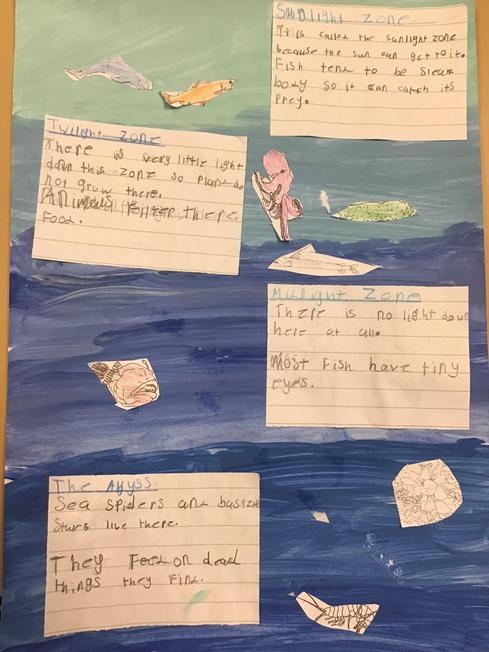 Sunlight Zone
It is called the sunlight zone
because the sun can get to it.
Fish tend to be
body so it can catch its
Prey.
Twilight Zone
There is very little light
down this zone so plants do
not grow there.
Animals there
Food.
Midlight Zone
There is no light down
here at all.
Most Fish have tiny
eyes.
The Abyss.
Sea spiders and
Stars live there.
They Feed on dead
things they Find.